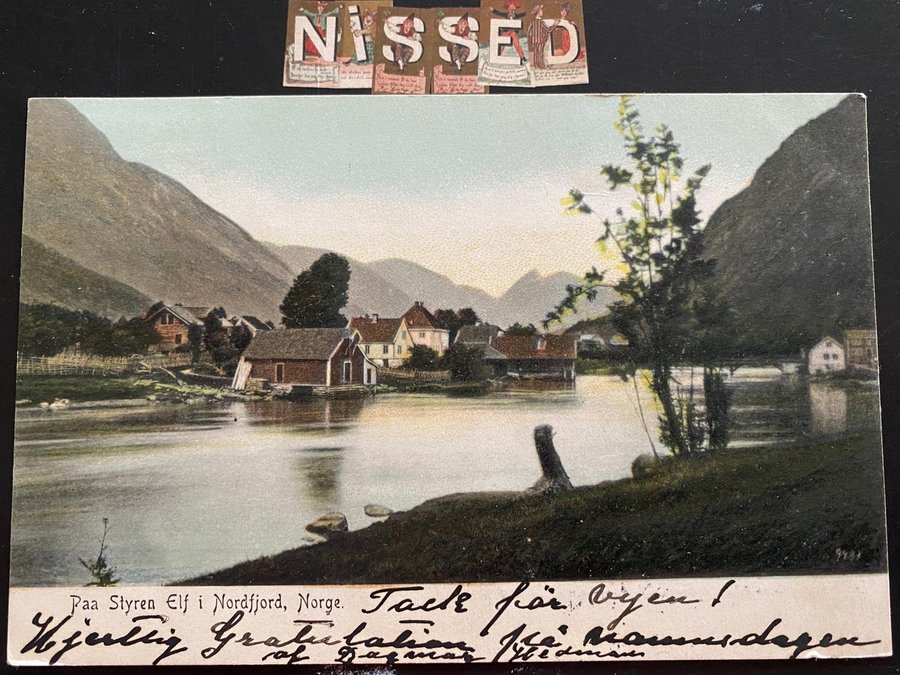 NiSSED
Paa Styren Elf i Nordfjord, Norge. Tack för vyen!
Hjertlig Gratulation på namnsdagen
af Dagmar Hedman